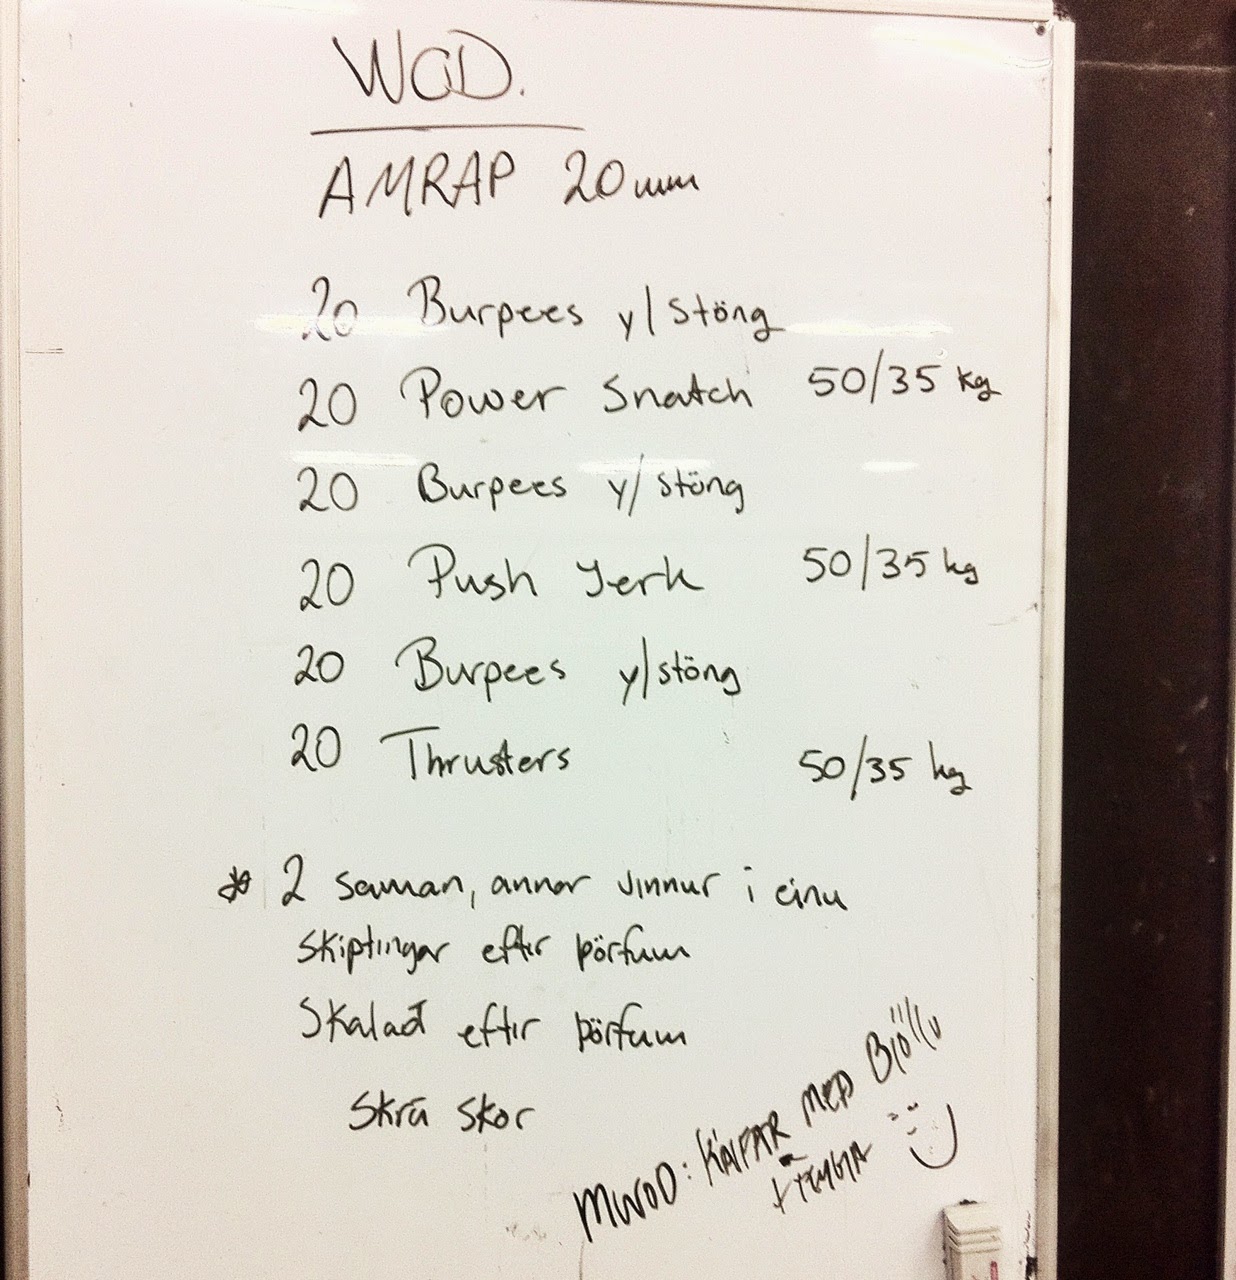 WOD.
AMRAP 20 mín
20 Burpees y/stöng
20 Power Snatch 50/35 kg
20 Burpees y/stöng
20 Push Jerk 50/35 kg
20 Burpees y/stöng
20 Thrusters 50/35 kg
* 2 saman, annar vinnur í einu
skiptingar eftir þörfum
Skalað eftir þörfum
Skrá skor
MWOD: KÁLFAR MEÐ Bjöllu
+ TEYGJA